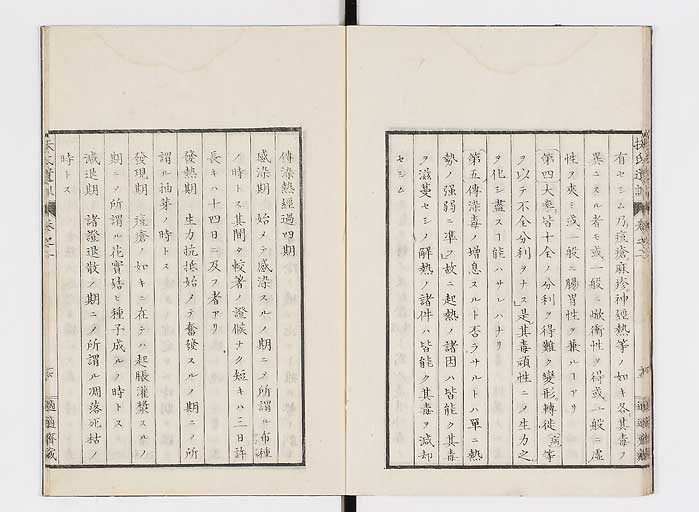 有セシム乃痘瘡麻疹神經熱等ノ如キ各其毒ヲ
異ニスル者モ或ハ一般ニ焮衝性ヲ得或ハ一般ニ虛
性ヲ夾ミ或ハ一般ニ腸胃性ヲ兼ルヿアリ
第四大勢皆十全ノ分利ヲ得難ク變形轉徙等
ヲ以テ不全分利ヲナス是其毒頑性ニノ生力之
ヲ化シ盡スヿ能ハサレハナリ
第五傳染毒ノ増息スルト否ラサルトハ單ニ熱
勢ノ强弱ニ準フ故ニ起熱ノ諸因ハ皆能ク其毒
ヲ滋蔓セシメ解熱ノ諸件ハ皆能ク其毒ヲ減却
セシム
傳染熱經過四期
感染期 始メテ感染スルノ期ニノ所謂ル布種
ノ時トス其間タ較著ノ證候ナク短キハ三日許
長キハ十四日ニ及フ者アリ
發熱期 生力抗抵始メテ奮發スルノ期ニノ所
謂ル抽芽ノ時トス
發現期 痘瘡ノ如キニ在テハ起脹灌膿スルノ
期ニノ所謂ル花實結ヒ種子成ルノ時トス
減退期 諸證退散ノ期ニノ所謂ル凋落死枯ノ
時トス
扶氏遺訓 卷之二
適適齋藏